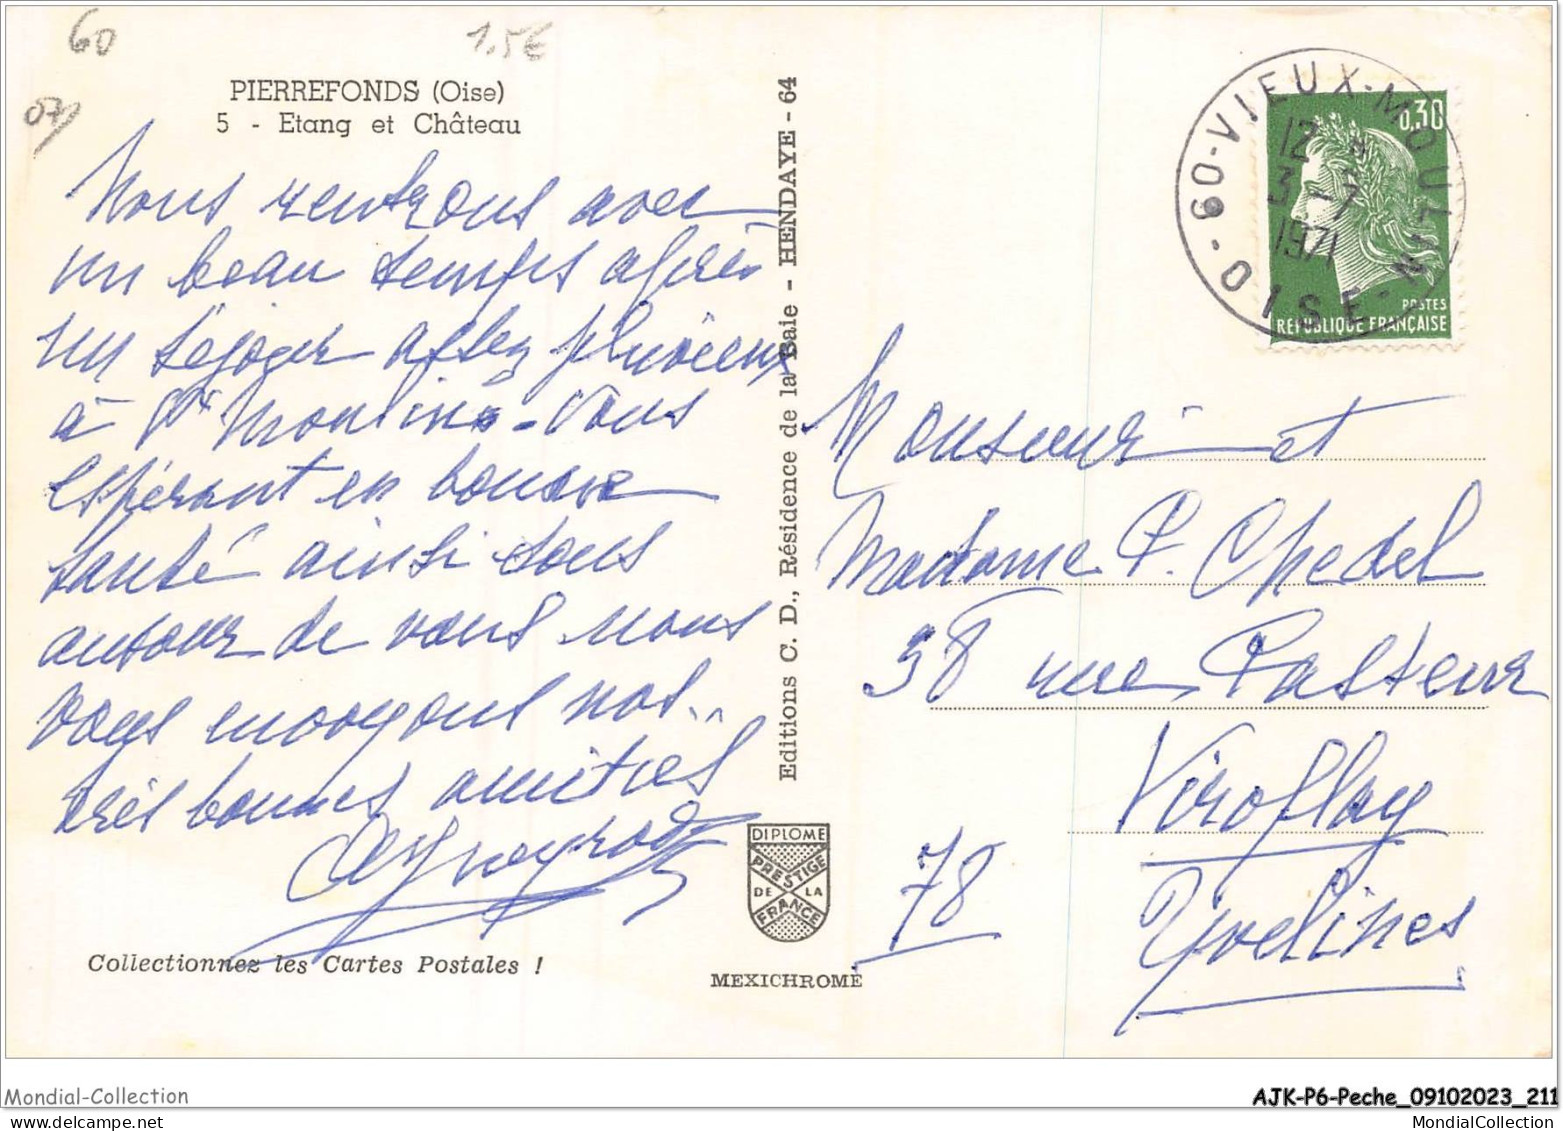 60
1.5€
07
PIERREFONDS (Oise)
5 - Etang et Château
Nous rentrons avec
un beau temps après
un séjour assez pluvieux
à Vx Moulin. Vous
espérant en bonne
santé ainsi tous
autour de vous nous
vous envoyons nos
très bonnes amitiés
Collectionnez les Cartes Postales !
Editions C. D., Résidence de la Baie - HENDAYE - 64
DIPLOME
PRESTIGE
DE LA
FRANCE
MEXICHROME
60-VIEUX-MOULIN
OISE
12 H
3 -7
1971
0,30
POSTES
REPUBLIQUE FRANÇAISE
Monsieur et
Madame P. Chedel
58 rue Pasteur
Viroflay
78
Yvelines
Mondial-Collection
AJK-P6-Peche_09102023_211
MondialCollection